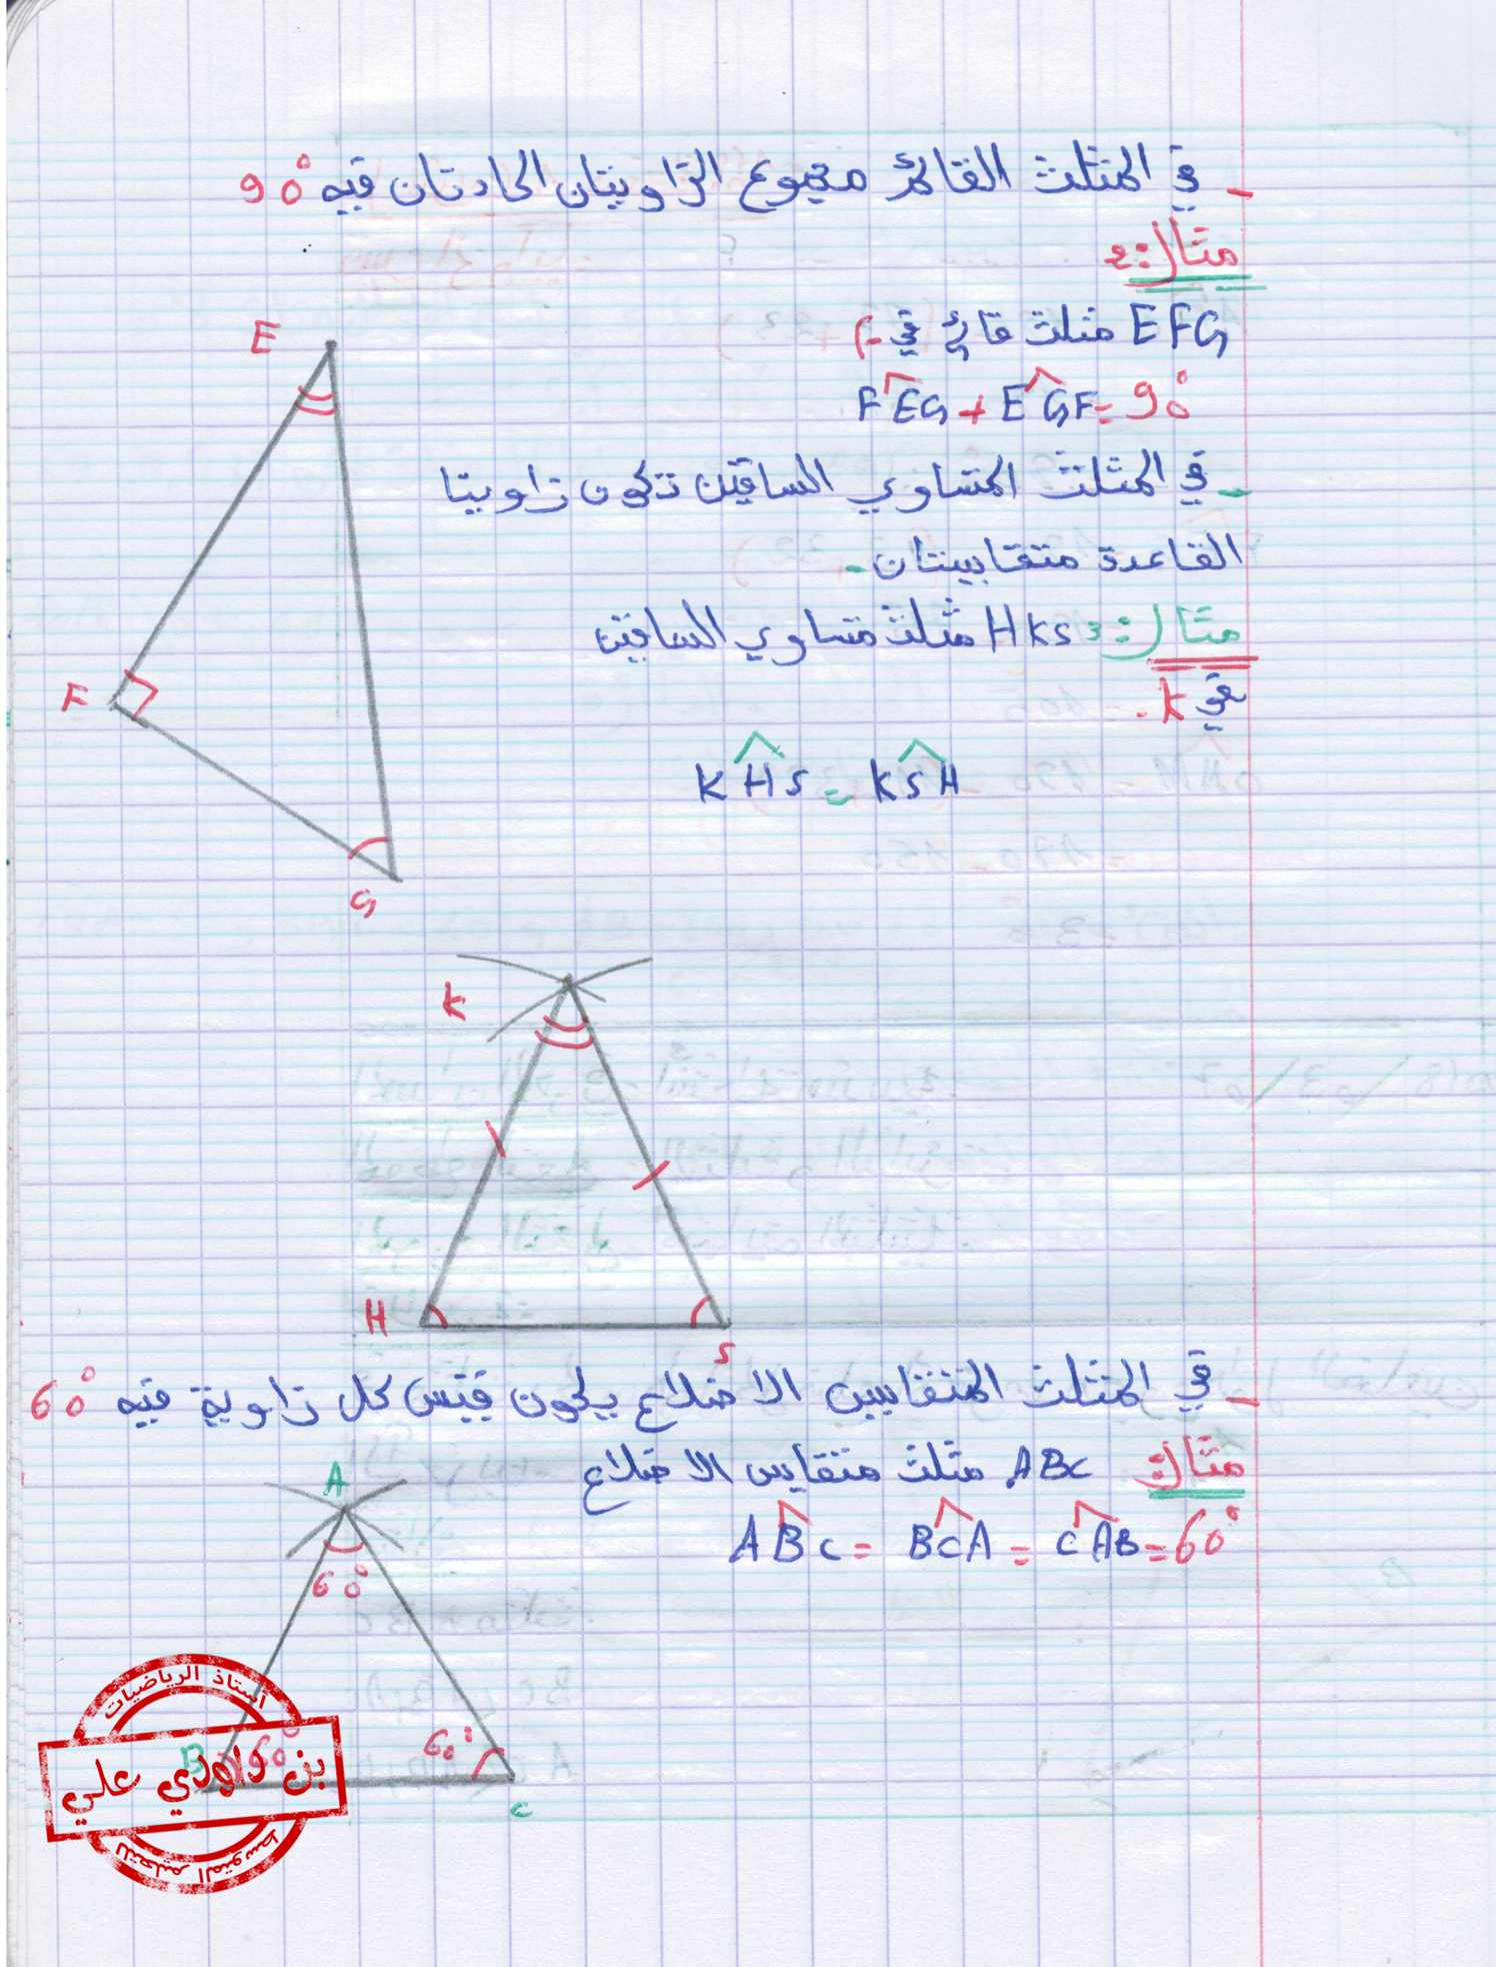 - في المثلث القائم مجموع الزاويتان الحادتان فيه 90°
مثال 2:
EFG مثلث قائم في F
FÊG + EĜF = 90°
- في المثلث المتساوي الساقين تكون زاويتا
القاعدة متقايستان.
مثال 3: HKS مثلث متساوي الساقين
في K.
KĤS = KŜH
E
F
G
K
H
S
- في المثلث المتقايس الاضلاع يكون قيس كل زاوية فيه 60°
مثال: ABC مثلث متقايس الاضلاع
AB̂C = BĈA = CÂB = 60°
A
60°
B 60°
60°
C
أستاذ الرياضيات
بن داودي علي
للتعليم المتوسط